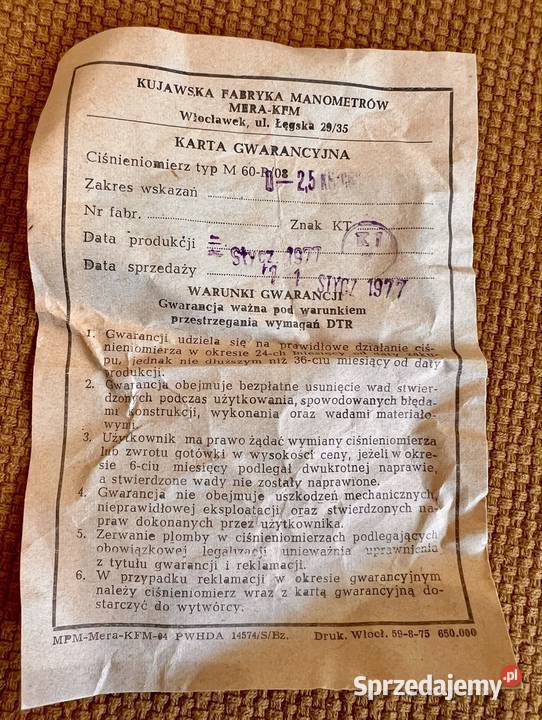 KUJAWSKA FABRYKA MANOMETRÓW
MERA-KFM
Włocławek, ul. Łęgska 29/35
KARTA GWARANCYJNA
Ciśnieniomierz typ M 60-R/08
Zakres wskazań 0-2,5
Nr fabr. Znak KT
Data produkcji STYCZ 1977
Data sprzedaży STYCZ 1977
WARUNKI GWARANCJI
Gwarancja ważna pod warunkiem
przestrzegania wymagań DTR
1. Gwarancji udziela się na prawidłowe działanie ciś-
nieniomierza w okresie 24-ch miesięcy od daty zaku-
pu, jednak nie dłuższym niż 36-ciu miesięcy od daty
produkcji.
2. Gwarancja obejmuje bezpłatne usunięcie wad stwier-
dzonych podczas użytkowania, spowodowanych błęda-
mi konstrukcji, wykonania oraz wadami materiało-
wymi.
3. Użytkownik ma prawo żądać wymiany ciśnieniomierza
lub zwrotu gotówki w wysokości ceny, jeżeli w okre-
sie 6-ciu miesięcy podlegał dwukrotnej naprawie,
a stwierdzone wady nie zostały naprawione.
4. Gwarancja nie obejmuje uszkodzeń mechanicznych,
nieprawidłowej eksploatacji oraz stwierdzonych na-
praw dokonanych przez użytkownika.
5. Zerwanie plomby w ciśnieniomierzach podlegających
obowiązkowej legalizacji unieważnia uprawnienia
z tytułu gwarancji i reklamacji.
6. W przypadku reklamacji w okresie gwarancyjnym
należy ciśnieniomierz wraz z kartą gwarancyjną do-
starczyć do wytwórcy.
MPM-Mera-KFM-04 PWHDA 14574/S/Bz. Druk. Włocł. 59-8-75 650.000
Sprzedajemy.pl